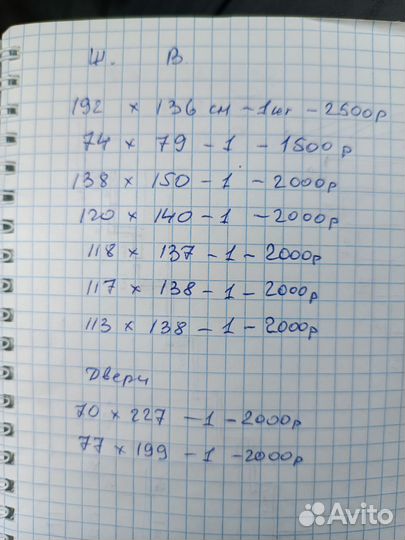 Ш. В
192 х 136 см - 1шт - 2500р
74 х 79 - 1 - 1500р
138 х 150 - 1 - 2000р
120 х 140 - 1 - 2000р
118 х 137 - 1 - 2000р
117 х 138 - 1 - 2000р
113 х 138 - 1 - 2000р
Двери
70 х 227 - 1 - 2000р
77 х 199 - 1 - 2000р
Avito